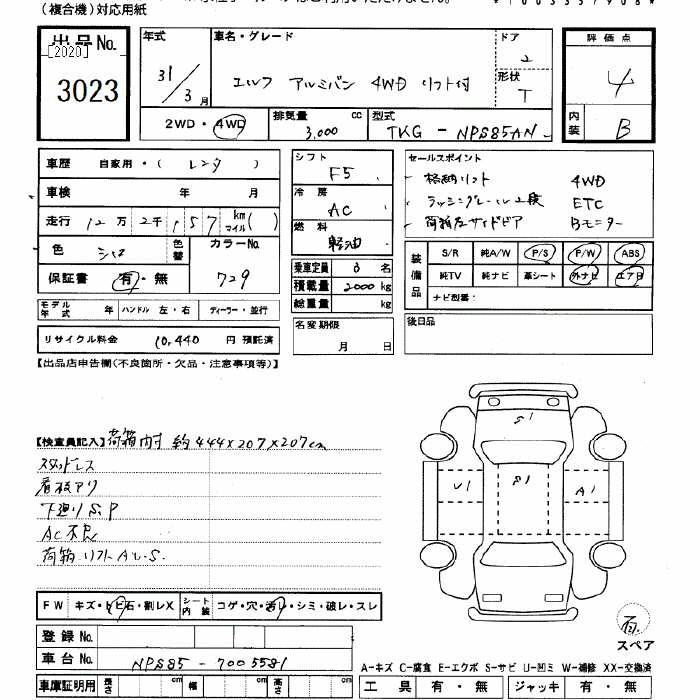 (複合機)対応用紙
出品No.
[2020]
3023
年式
31/3月
車名・グレード
エルフ アルミバン 4WD リフト付
ドア
2
形状
T
評価点
4
内装
B
2WD・4WD
排気量
3,000
cc
型式
TKG - NPS85AN
車歴 自家用・( レンタ )
車検 年 月
走行 12万 2千 157 km マイル( )
色 シロ 色替
カラーNo.
729
保証書 有・無
モデル年式 年 ハンドル 左・右 ディーラー・並行
リサイクル料金 10,440 円 預託済
シフト
F5
冷房
AC
燃料
軽油
乗車定員 3 名
積載量 2000 kg
総重量 kg
名変期限
月 日
セールスポイント
格納リフト 4WD
ラッシングレール2段 ETC
荷箱左サイドドア Bモニター
装備品
S/R 純A/W P/S P/W ABS
純TV 純ナビ 革シート 外ナビ エアB
ナビ型番:
後日品
【出品店申告欄(不良箇所・欠品・注意事項等)】
【検査員記入】荷箱内寸 約444×207×207cm
スタッドレス
看板アリ
下廻りS.P
AC不良
荷箱・リフトAU.S.
FW キズ・ヒビ石・割レX シート内装 コゲ・穴・汚レ・シミ・破レ・スレ
登録No.
車台No. NPS85 - 7005581
車庫証明用 長さ cm 幅 cm 高さ cm
S1
U1
S1
A1
有
スペア
A-キズ C-腐食 E-エクボ S-サビ U-凹ミ W-補修 XX-交換済
工具 有・無 ジャッキ 有・無